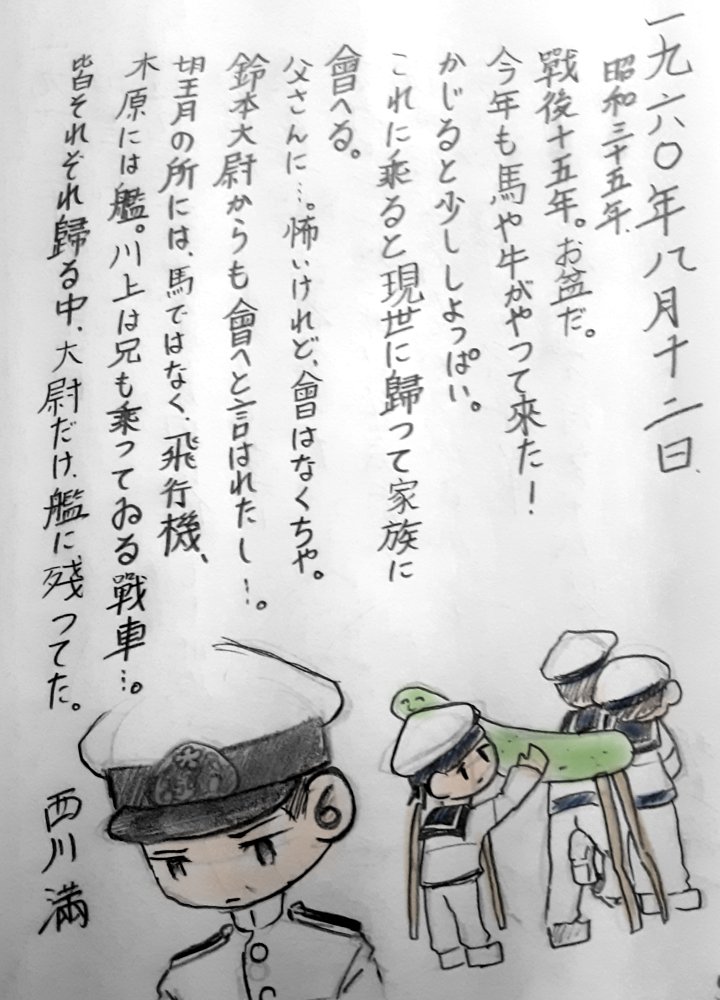 一九六〇年八月十二日
昭和三十五年
戰後十五年。お盆だ。
今年も馬や牛がやつて來た！
かじると少ししよつぱい。
これに乘ると現世に歸つて家族に
會へる。
父さんに…。怖いけれど、會はなくちや。
鈴木大尉からも會へと言はれたし…。
望月の所には、馬ではなく、飛行機、
木原には艦。川上は兄も乘つてゐる戰車…。
皆それぞれ歸る中、大尉だけ、艦に残つてた。
西川満